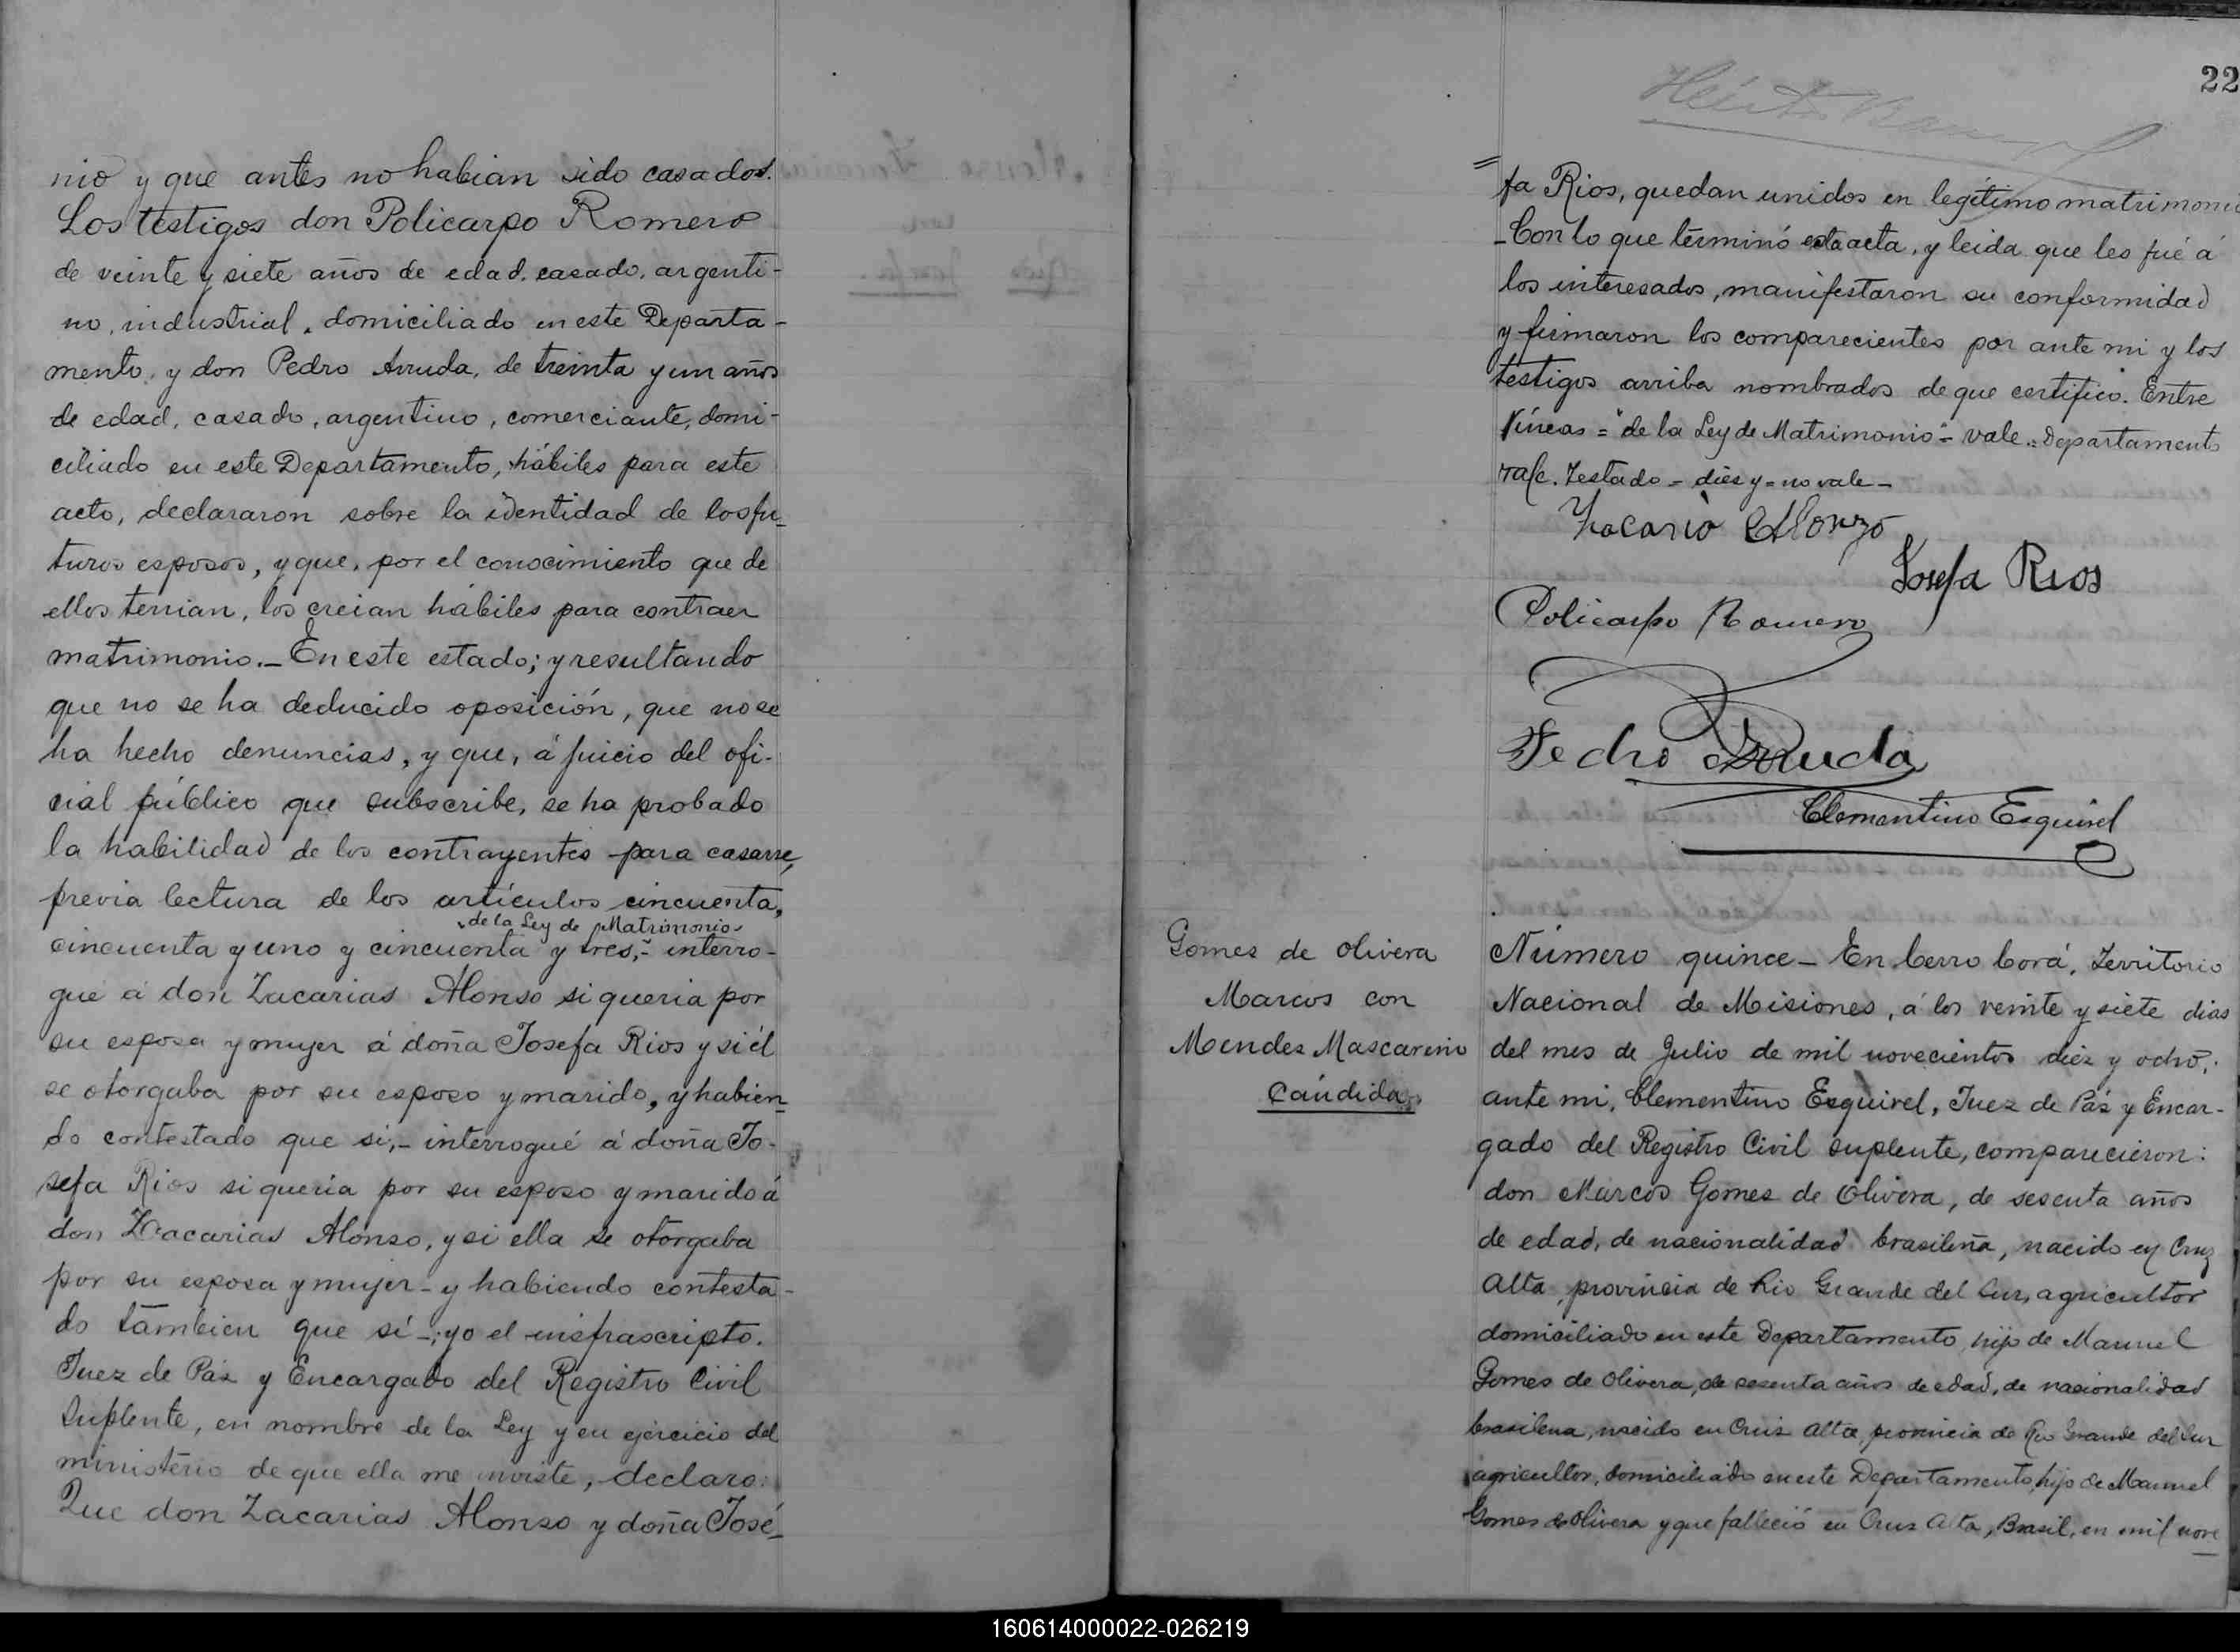 nio y que antes no habian sido casados.
Los testigos don Policarpo Romero
de veinte y siete años de edad, casado, argenti-
no, industrial, domiciliado en este Departa-
mento, y don Pedro Arruda, de treinta y un años
de edad, casado, argentino, comerciante, domi-
ciliado en este Departamento, hábiles para este
acto, declararon sobre la identidad de los fu-
turos esposos, y que, por el conocimiento que de
ellos tenian, los creian hábiles para contraer
matrimonio.- En este estado; y resultando
que no se ha deducido oposición, que no se
ha hecho denuncias, y que, á juicio del ofi-
cial público que subscribe, se ha probado
la habilidad de los contrayentes para casarse,
previa lectura de los artículos cincuenta,
"de la Ley de Matrimonio"
cincuenta y uno y cincuenta y tres,- interro-
gué á don Zacarias Alonso si queria por
su esposa y mujer á doña Josefa Rios y si él
se otorgaba por su esposo y marido, y habien-
do contestado que si,- interrogué á doña Jo-
sefa Rios si queria por su esposo y marido á
don Zacarias Alonso, y si ella se otorgaba
por su esposa y mujer - y habiendo contesta-
do tambien que sí-; yo el infrascripto.
Juez de Paz y Encargado del Registro Civil
Suplente, en nombre de la Ley y en ejercicio del
ministerio de que ella me inviste, declaro:
Que don Zacarias Alonso y doña José-
22
=
fa Rios, quedan unidos en legítimo matrimonio
-Con lo que terminó esta acta, y leida que les fué á
los interesados, manifestaron su conformidad
y firmaron los comparecientes por ante mi y los
testigos arriba nombrados de que certifico. Entre
líneas = "de la Ley de Matrimonio" - vale. Departamento
Testado - diez y = no vale -
Zacario Alonzo
Josefa Rios
Policarpo Romero
Pedro Arruda
Clementino Esquivel
Gomes de Olivera
Marcos con
Mendes Mascareño
Cándida
Número quince - En Cerro Corá, Territorio
Nacional de Misiones, á los veinte y siete dias
del mes de Julio de mil novecientos diez y ocho,
ante mi, Clementino Esquivel, Juez de Paz y Encar-
gado del Registro Civil suplente, comparecieron:
don Marcos Gomes de Olivera, de sesenta años
de edad, de nacionalidad brasileña, nacido en Cruz
Alta, provincia de Rio Grande del Sur, agricultor
domiciliado en este Departamento, hijo de Manuel
Gomes de Olivera, de sesenta años de edad, de nacionalidad
brasilena, nacido en Cruz Alta, provincia de Rio Grande del Sur
agricultor, domiciliado en este Departamento, hijo de Manuel
Gomes de Olivera y que falleció en Cruz Alta, Brasil, en mil nove
160614000022-026219